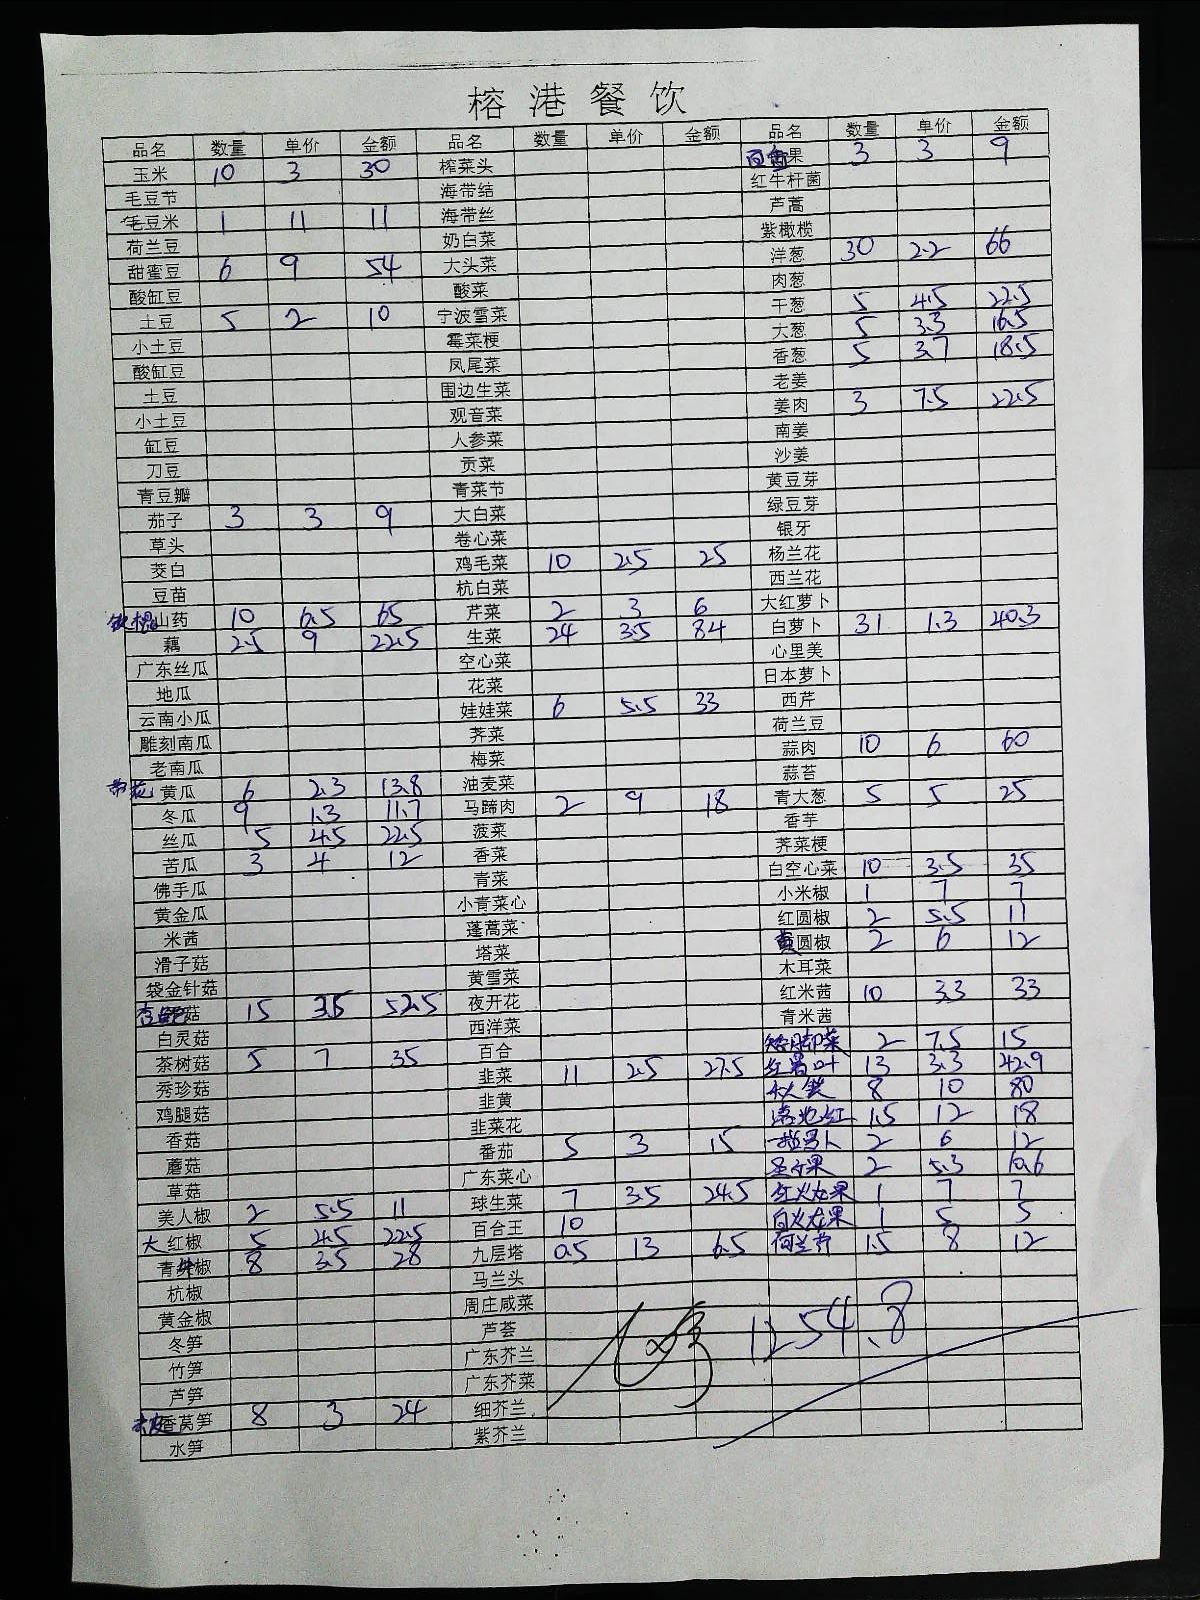 榕港餐饮
品名 数量 单价 金额 品名 数量 单价 金额 品名 数量 单价 金额
玉米 10 3 30 榨菜头 果 3 3 9
毛豆节 海带结 红牛杆菌
毛豆米 1 11 11 海带丝 芦蒿
荷兰豆 奶白菜 紫橄榄
甜蜜豆 6 9 54 大头菜 洋葱 30 2.2 66
酸缸豆 酸菜 肉葱
土豆 5 2 10 宁波雪菜 干葱 5 4.5 22.5
小土豆 霉菜梗 大葱 5 3.3 16.5
酸缸豆 凤尾菜 香葱 5 3.7 18.5
土豆 围边生菜 老姜
小土豆 观音菜 姜肉 3 7.5 22.5
缸豆 人参菜 南姜
刀豆 贡菜 沙姜
青豆瓣 青菜节 黄豆芽
茄子 3 3 9 大白菜 绿豆芽
草头 卷心菜 银牙
茭白 鸡毛菜 10 2.5 25 杨兰花
豆苗 杭白菜 西兰花
铁棍山药 10 6.5 65 芹菜 2 3 6 大红萝卜
藕 2.5 9 22.5 生菜 24 3.5 84 白萝卜 31 1.3 40.3
广东丝瓜 空心菜 心里美
地瓜 花菜 日本萝卜
云南小瓜 娃娃菜 6 5.5 33 西芹
雕刻南瓜 荠菜 荷兰豆
老南瓜 梅菜 蒜肉 10 6 60
带花黄瓜 6 2.3 13.8 油麦菜 蒜苔
冬瓜 9 1.3 11.7 马蹄肉 2 9 18 青大葱 5 5 25
丝瓜 5 4.5 22.5 菠菜 香芋
苦瓜 3 4 12 香菜 荠菜梗
佛手瓜 青菜 白空心菜 10 3.5 35
黄金瓜 小青菜心 小米椒 1 7 7
米茜 蓬蒿菜 红圆椒 2 5.5 11
滑子菇 塔菜 黄圆椒 2 6 12
袋金针菇 黄雪菜 木耳菜
杏鲍菇 15 3.5 52.5 夜开花 红米茜 10 3.3 33
白灵菇 西洋菜 青米茜
茶树菇 5 7 35 百合 矮脚菜 2 7.5 15
秀珍菇 韭菜 11 2.5 27.5 红薯叶 13 3.3 42.9
鸡腿菇 韭黄 8 10 80
香菇 韭菜花 1.5 12 18
蘑菇 番茄 5 3 15 2 6 12
草菇 广东菜心 圣女果 2 5.3 10.6
美人椒 2 5.5 11 球生菜 7 3.5 24.5 红火龙果 1 7 7
大红椒 5 4.5 22.5 百合王 10 白火龙果 1 5 5
青尖椒 8 3.5 28 九层塔 0.5 13 6.5 荷兰芹 1.5 8 12
杭椒 马兰头
黄金椒 周庄咸菜
冬笋 芦荟 1254.8
竹笋 广东芥兰
芦笋 广东芥菜
香莴笋 8 3 24 细芥兰
水笋 紫芥兰